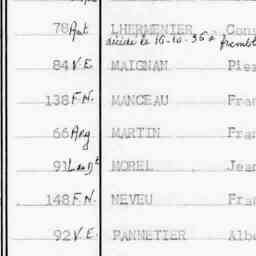 78 Aut LHERMENIER Cons
décédé le 16-10-36 à
84 V.E. MAIGNAN Pier
138 F.N. MANCEAU Fran
66 Arg MARTIN Fra
91 Land^t MOREL Jean
148 F.N. NEVEU Fra
92 V.E. PANNETIER Albe